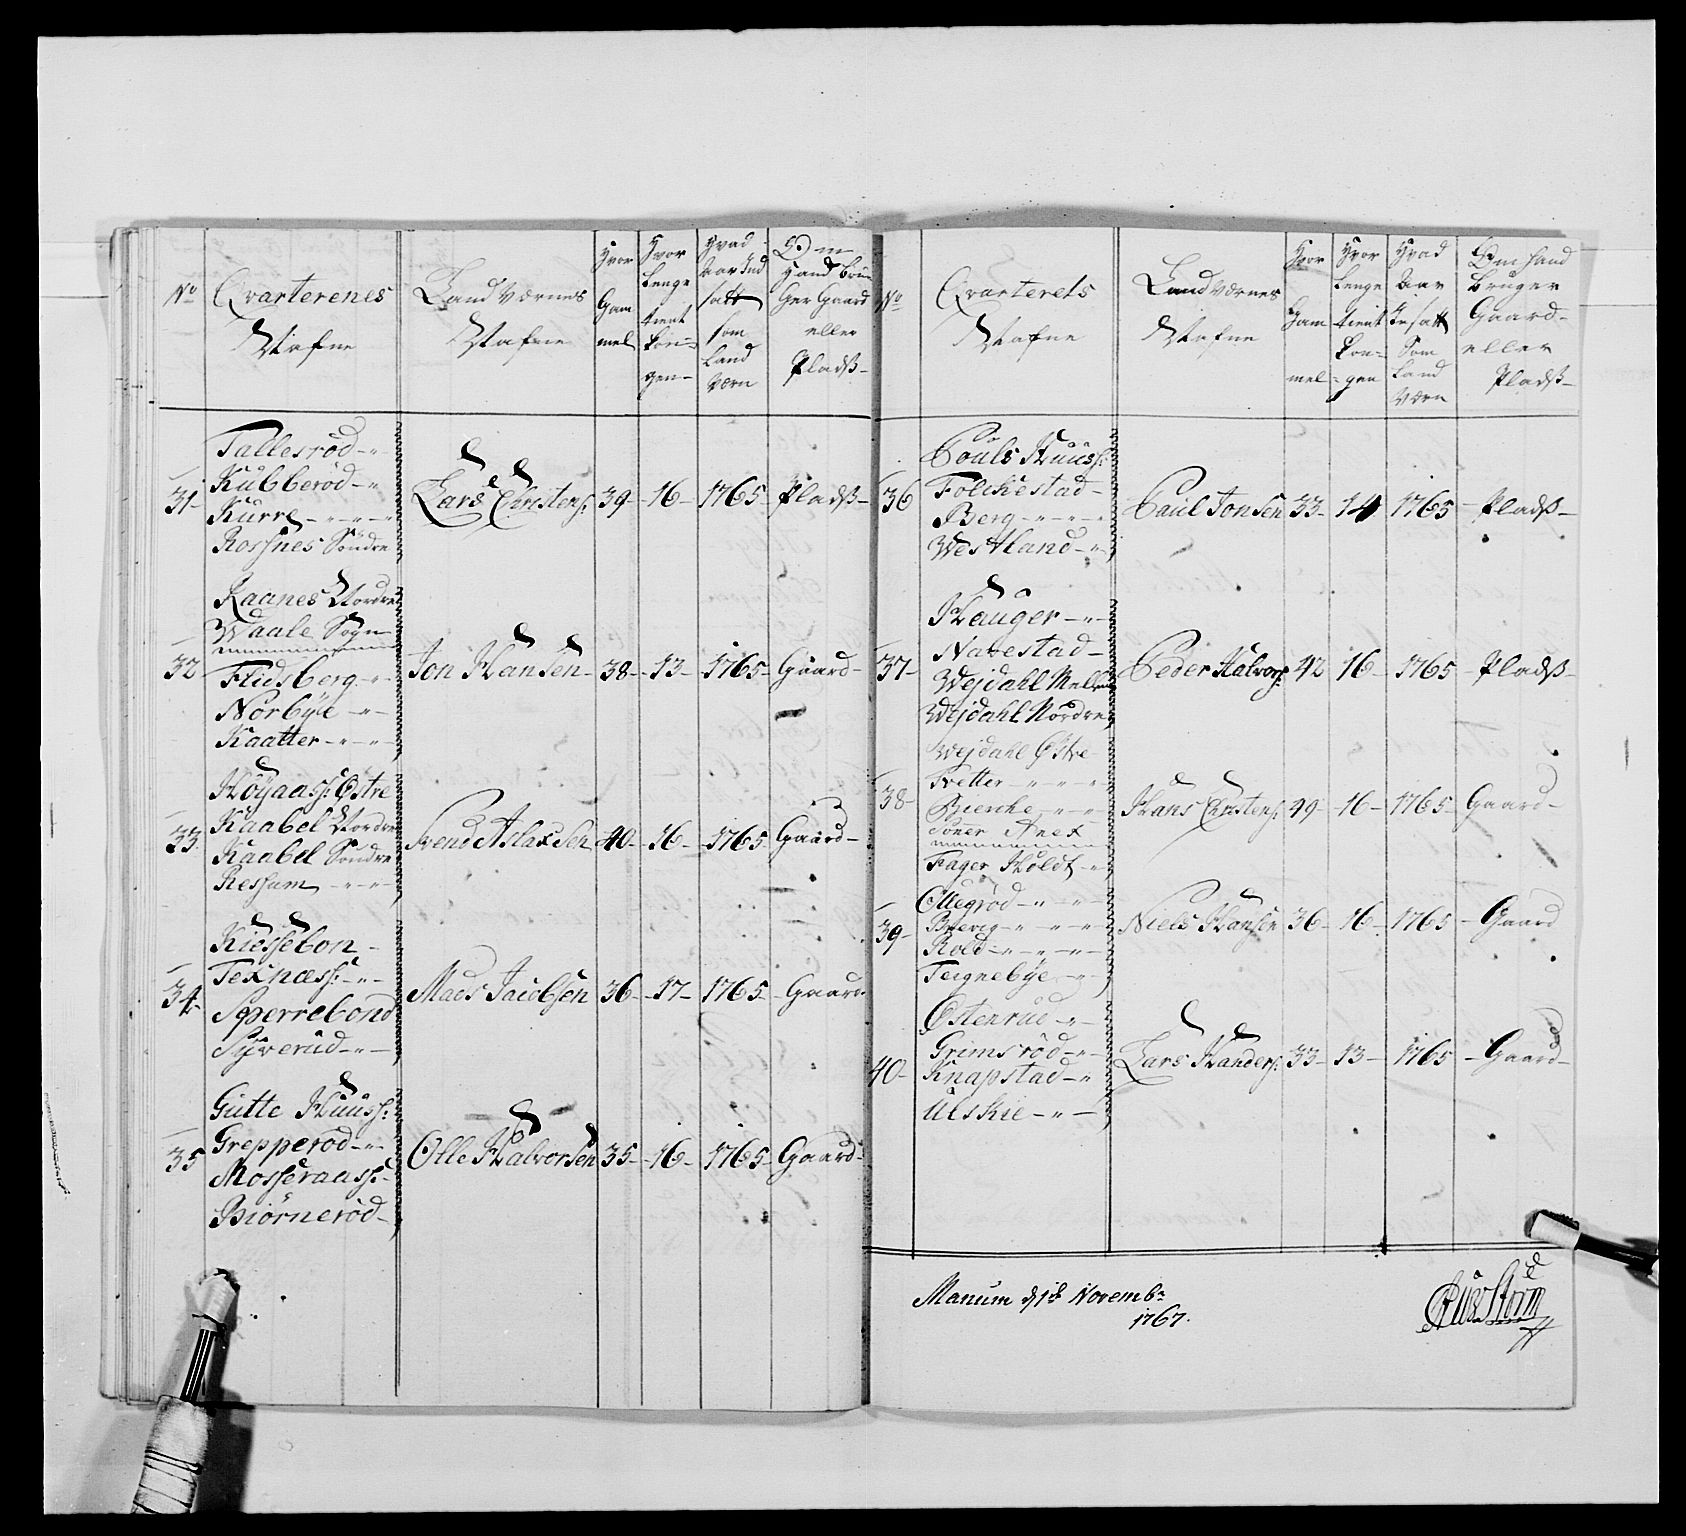 No
Qvarterenes
Nafne
Land Værnes
Nafne
Hvor
Gam
mel
Hvor
Lenge
tient
Kon=
gen-
Hvad
Aar Ind
satt
som
Land
Værn
Om
Hand bru=
Ger Gaard
eller
Pladß-
Tallesröd-"
Kubberöd-"
Kurre-"-"-
Rossnes Söndre
31
Lars Christens: 39- 16- 1765- Pladß-
Raanes Nordre
Waale Sogn
Flidsberg-"
Norbÿe-"-
Kaatter-"-"-
32
Jon Hansen- 38- 13- 1765- Gaard-
Höÿaas: Östre
Kaabel Nordre
Kaabel Söndre
Ressum-"-"-
33
Svend Aslaxsen 40- 16- 1765- Gaard-
Kiessebon-
Texnæss:-"-
Sperrebond
Syverud-"-
34
Mads Jacobsen 36- 17- 1765- Gaard-
Gutte Huuss:
Grepperöd-"-
Mosseraass:-
Biörneröd-
35
Olle Halvorsen 35- 16- 1765- Gaard-
No
Qvarterets
Nafne
Land værnes
Nafne
Hvor
Gam
mel-
Hvor
Lenge
tient
Kon=
gen
Hvad
Aar
Insatt
Som
Land
Værn
Om hand
Bruger
Gaard-
eller
Pladß-
Pouls Huuss:
Folchestad-
Berg-"-"-
Westland-"
36
Paul Jonsen 33- 14 1765- Pladß-
Hauger-"-
Narestad-
Wejdahl Mellem
Wejdahl Nordre
37-
Peder Halvors: 42 16- 1765- Pladß-
Wejdahl Östre
Tvetter-"-"-
Biercke-"-"
Soner Anex
Fager Holdt-"
38-
Hans Christens: 49- 16- 1765- Gaard-
Ottegröd-"-"-
Brevig-"-"-"
Roed-"-"-"-
Tegnebÿe-"-
39-
Niels Hansen 36- 16- 1765- Gaard
Östenrud-"-
Grimsröd-"-
Knapstad-"
Ulskie-"-
40-
Lars Handers: 33- 13- 1765- Gaard-
Manum d 18 Novembr
1767.